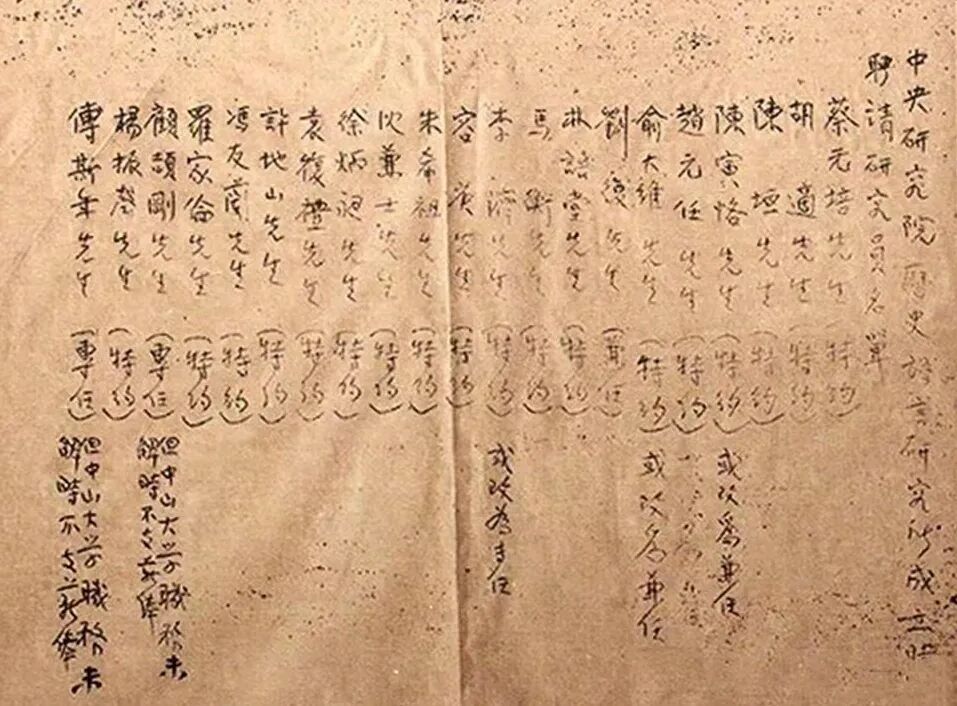 中央研究院歷史語言研究所成立時
聘請研究員名單
蔡元培先生（特約）
胡適先生（特約）
陳垣先生（特約）
陳寅恪先生（特約）或改為兼任
趙元任先生（特約）
俞大維先生（特約）或改為兼任
劉復先生（兼任）
林語堂先生（特約）
馬衡先生（特約）
李濟先生（特約）或改為專任
容庚先生（特約）
朱希祖先生（特約）
沈兼士先生（特約）
徐炳昶先生（特約）
袁復禮先生（特約）
許地山先生（特約）
馮友蘭先生（特約）
羅家倫先生（特約）
顧頡剛先生（專任）但中山大学職務未解時不支薪俸
楊振聲先生（特約）
傅斯年先生（專任）但中山大学職務未解時不支薪俸